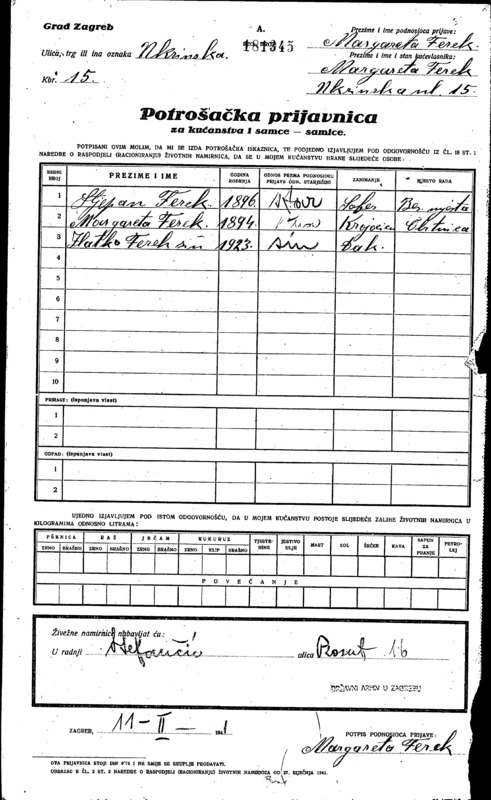 Grad Zagreb
A.
Prezime i ime podnosioca prijave:
Margareta Ferek.
Ulica, trg ili ina oznaka Nkrinska.
Prezime i ime i stan kućevlasnika:
Margareta Ferek
Kbr. 15.
Nkrinska ul. 15.
Potrošačka prijavnica
za kućanstva i samce — samice.
POTPISANI OVIM MOLIM, DA MI SE IZDA POTROŠAČKA ISKAZNICA, TE PODJEDNO IZJAVLJUJEM POD ODGOVORNOŠĆU IZ ČL. 18 ST. 1
NAREDBE O RASPODJELI (RACIONIRANJU) ŽIVOTNIH NAMIRNICA, DA SE U MOJEM KUĆANSTVU HRANE SLIJEDEĆE OSOBE:
REDNI BROJ PREZIME I IME GODINA ROĐENJA ODNOS PREMA PODNOSIOCU PRIJAVE ODN. STARJEŠINI ZANIMANJE MJESTO RADA
1 Stjepan Ferek. 1896.
2 Margareta Ferek. 1894. Obrtnica
3 Zlatko Ferek sin 1923. sin Đak.
4
5
6
7
8
9
10
PRIRAST: (ispunjava vlast)
1
2
OTPAD: (ispunjava vlast)
1
2
UJEDNO IZJAVLJUJEM POD ISTOM ODGOVORNOŠĆU, DA U MOJEM KUĆANSTVU POSTOJE SLIJEDEĆE ZALIHE ŽIVOTNIH NAMIRNICA U
KILOGRAMIMA ODNOSNO LITRAMA:
PŠENICA RAŽ JEČAM KUKURUZ TJESTENINE JESTIVO ULJE MAST SOL ŠEĆER KAVA SAPUN ZA PRANJE PETROLEJ
ZRNO BRAŠNO ZRNO BRAŠNO ZRNO BRAŠNO ZRNO KLIP BRAŠNO
POVEĆANJE
Živežne namirnice nabavljat ću:
U radnji Stefančić ulica 16
DRŽAVNI ARHIV U ZAGREBU
ZAGREB, 11-II- 1941
POTPIS PODNOSIOCA PRIJAVE:
Margareta Ferek
OVA PRIJAVNICA STOJI DIN 0'75 I NE SMIJE SE SKUPLJE PRODAVATI.
OBRAZAC K ČL. 2 ST. 2 NAREDBE O RASPODJELI (RACIONIRANJU) ŽIVOTNIH NAMIRNICA OD 27. SIJEČNJA 1941.